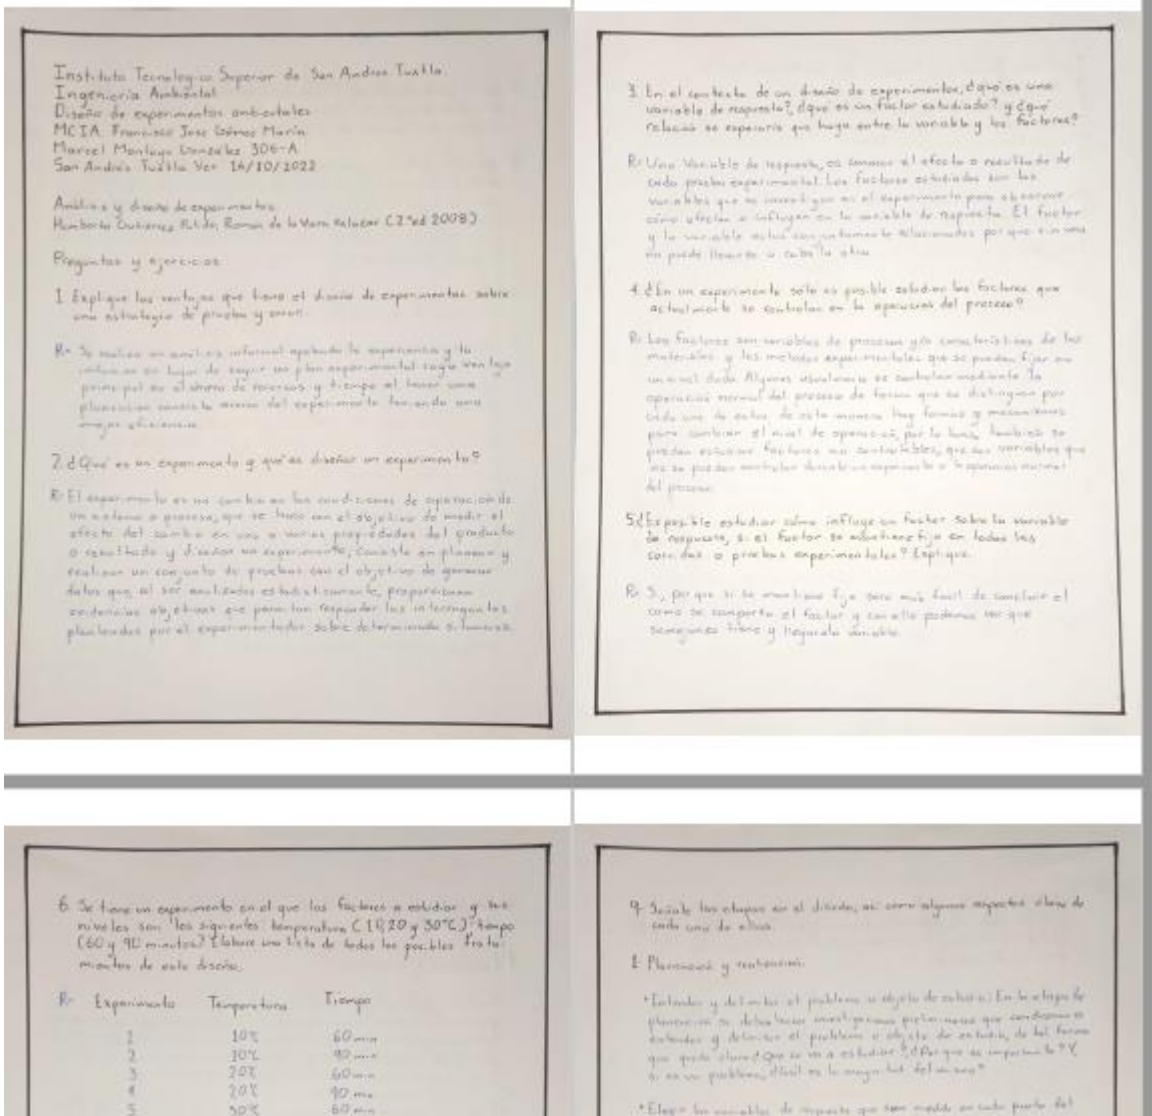 Instituto Tecnologico Superior de San Andres Tuxtla.
Ingenieria Ambiental
Diseño de experimentos ambientales
MCIA. Francisco Jose Gómez Marin
Marcel Montoya Gonzalez 306-A
San Andres Tuxtla Ver 14/10/2022
Analisis y diseño de experimentos
Humberto Gutierrez Pulido, Roman de la Vara Salazar (2°ed 2008)
Preguntas y ejercicios
1. Explique las ventajas que tiene el diseño de experimentos sobre
una estrategia de prueba y error.
R= Se realiza un analisis informal apelando la experiencia y la
en lugar de seguir un plan experimental cuya ventaja
principal es el ahorro de recursos y tiempo al tener una
planeacion del experimento teniendo una
mejor eficiencia.
2. ¿Qué es un experimento y qué es diseñar un experimento?
R= El experimento es un cambio en las condiciones de operación de
un sistema o proceso, que se hace con el objetivo de medir el
efecto del cambio en una o varias propiedades del producto
o resultado y diseñar un experimento, consiste en planear y
realizar un conjunto de pruebas con el objetivo de generar
datos que, al ser analizados estadisticamente, proporcionen
evidencias objetivas que permitan responder las interrogantes
planteadas por el experimentador sobre determinada situación.
3. En el contexto de un diseño de experimentos, ¿qué es una
variable de respuesta?, ¿qué es un factor estudiado? y ¿qué
relación se esperaria que haya entre la variable y los factores?
R= Una Variable de respuesta, es conocer el efecto o resultado de
cada prueba experimental. Los factores estudiados son las
variables que se investigan en el experimento para observar
cómo afectan o influyen en la variable de respuesta. El factor
y la variable estan conjuntamente relacionados porque sin una
no puede llevarse a cabo la otra.
4. ¿En un experimento sólo es posible estudiar los factores que
actualmente se controlan en la operación del proceso?
R= Los factores son variables de proceso y/o características de los
materiales y los metodos experimentales que se puedan fijar en
un nivel dado. Algunos usualmente se controlan mediante la
operacion normal del proceso de forma que se distinguen por
cada uno de estos de esta manera hay formas y mecanismos
para cambiar el nivel de operación, por lo tanto también se
pueden estudiar factores no controlables, que son variables que
no se puedan controlar durante un experimento o la operacion normal
del proceso.
5. ¿Es posible estudiar cómo influye un factor sobre la variable
de respuesta, si el factor se mantiene fijo en todas las
corridas o pruebas experimentales? Explique.
R= Si, porque si se mantiene fijo sera más facil de concluir el
como se comporta el factor y con ello podemos ver que
tiene y la variable.
6. Se tiene un experimento en el que los factores a estudiar y sus
niveles son los siguientes: temperatura (10, 20 y 30°C); tiempo
(60 y 90 minutos) Elabore una lista de todos los posibles trata-
mientos de este diseño.
R= Experimento Temperatura Tiempo
1 10°C 60 min
2 10°C 90 min
3 20°C 60 min
4 20°C 90 min
5 30°C 60 min
9. Señale las etapas en el diseño, asi como algunos aspectos clave de
cada una de ellas.
1. Planeacion y realización.
•Entender y delimitar el problema u objeto de estudio: En la etapa de
planeación se deben hacer investigaciones preliminares que conduzcan a
entender y delimitar el problema u objeto de estudio, de tal forma
que quede claro ¿Qué se va a estudiar?, ¿Por qué es importante? Y,
si es un problema, ¿Cuál es la magnitud del mismo?
•Elegir las variables de respuesta que sera medida en cada punto del